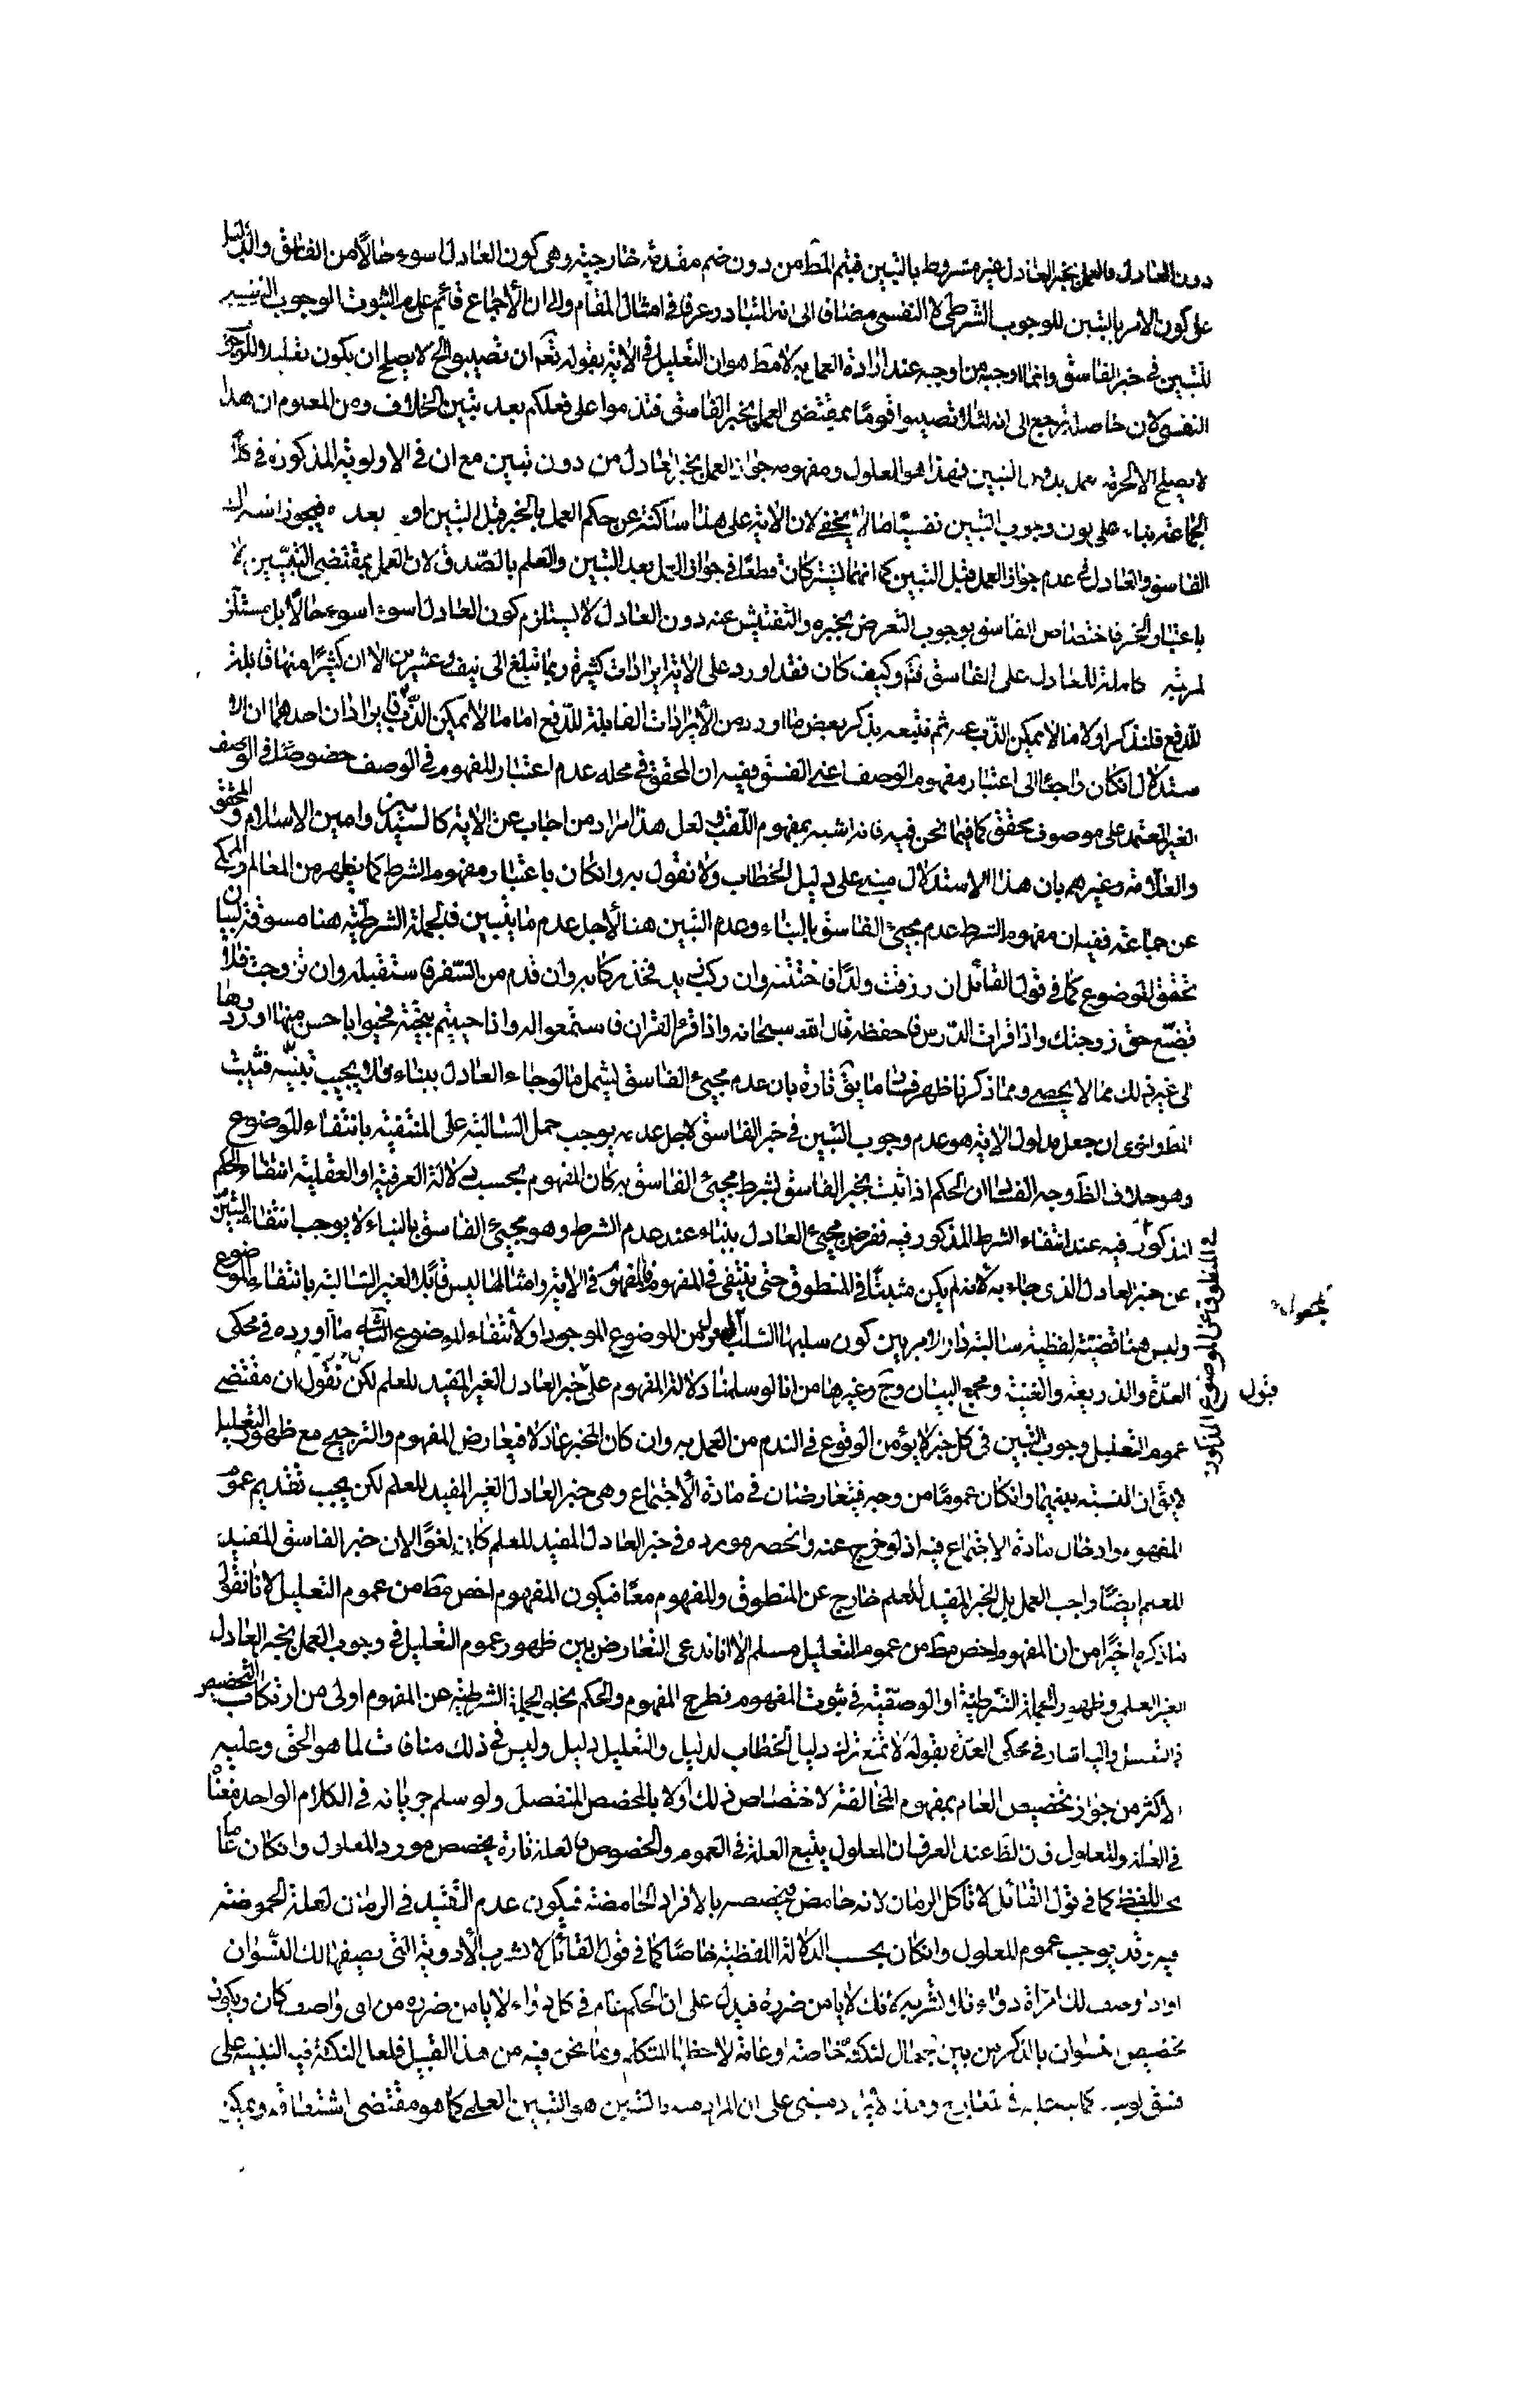 دون العادل فالعمل بخبر العادل غير مشروط بالتبين فيتم المط من دون ضم مقدمة خارجية وهى كون العادل اسوء حالا من الفاسق والدليل
على كون الامر بالتبين للوجوب الشرطى لا النفسى مضافا الى انه المتبادر عرفا فى امثال المقام والى ان الاجماع قائم على عدم ثبوت الوجوب النفسى
للتبين فى خبر الفاسق وانما اوجبه من اوجبه عند ارادة العمل به لا مط هو ان التعليل فى الاية بقوله تعم ان تصيبوا الخ لا يصلح ان يكون تعليلا للوجوب
النفسى لان حاصله يرجع الى انه لئلا تصيبوا قوما بمقتضى العمل بخبر الفاسق فتندموا على فعلكم بعد تبين الخلاف ومن المعلوم ان هذا
لا يصلح الا لحرمة العمل بدون التبين فهذا هو المعلول ومفهومه جواز العمل بخبر العادل من دون تبين مع ان فى الاولوية المذكورة فى كلام
الجماعة بناء على كون وجوب التبين نفسيا ما لا يخفى لان الاية على هذا ساكتة عن حكم العمل بالخبر قبل التبين او بعده فيجوز اشتراك
الفاسق والعادل فى عدم جواز العمل قبل التبين كما انهما يشتركان قطعا فى جواز العمل بعد التبين والعلم بالصدق لان العمل بمقتضى التبين لا
باعتبار الخبر فاختصاص الفاسق بوجوب التعرض بخبره والتفتيش عنه دون العادل لا يستلزم كون العادل اسوء اسوء حالا بل مستلزم
لمزية كاملة للعادل على الفاسق فت وكيف كان فقد اورد على الاية ايرادات كثيرة ربما تبلغ الى نيف وعشرين الا ان كثيرا منها قابلة
للدفع فلنذكر اولا ما لا يمكن الذب عنه ثم نتبعه بذكر بعض ما اورد من الايرادات القابلة للدفع اما ما لا يمكن الذب فايرادان احدهما ان الا
ستدلال ان كان راجعا الى اعتبار مفهوم الوصف اعنى الفسق ففيه ان المحقق فى محله عدم اعتبار المفهوم فى الوصف خصوصا فى الوصف
الغير المعتمد على موصوف محقق كما فيما نحن فيه فانه اشبه بمفهوم اللقب ولعل هذا مراد من اجاب عن الاية كالسيدين وامين الاسلام والمحقق
والعلامة وغيرهم بان هذا الاستدلال مبنى على دليل الخطاب ولا نقول به وان كان باعتبار مفهوم الشرط كما يظهر من المعالم والمحكى
عن جماعة ففيه ان مفهوم الشرط عدم مجىء الفاسق بالنباء وعدم التبين هنا لاجل عدم ما يتبين فالجملة الشرطية هنا مسوقة لبيان
تحقق الموضوع كما فى قول القائل ان رزقت ولدا فاختنه وان ركب زيد فخذ ركابه وان قدم من السفر فاستقبله وان تزوجت فلا
تضيع حق زوجتك واذا قرات الدرس فاحفظه قال الله سبحانه واذا قرئ القران فاستمعوا له واذا حييتم بتحية فحيوا باحسن منها او ردوها
الى غير ذلك مما لا يحصى ومما ذكرنا ظهر فساد ما يق تارة بان عدم مجىء الفاسق يشمل ما لو جاء العادل بنباء فلا يجب تبينه فيثبت
المط واخرى ان جعل مدلول الاية هو عدم وجوب التبين فى خبر الفاسق لاجل عدمه يوجب حمل السالبة على المنتفية بانتفاء الموضوع
وهو خلاف الظ وجه الفساد ان الحكم اذا ثبت بخبر الفاسق بشرط مجىء الفاسق به كان المفهوم بحسب الدلالة العرفية او العقلية انتفاء الحكم
المذكور فيه عند انتفاء الشرط المذكور فيه ففرض مجىء العادل بنباء عند عدم الشرط وهو مجىء الفاسق بالنباء لا يوجب انتفاء التبين
فى المنطوق عن الموضوع المذكور
عن خبر العادل الذى جاء به لانه لم يكن مثبتا فى المنطوق حتى ينتفى فى المفهوم فالمفهوم فى الاية وامثالها ليس قابلا لغير السالبة بانتفاء الموضوع
وليس هنا قضية لفظية سالبة دار الامر بين كون سلبها لسلب المحمول عن الموضوع الموجود او لانتفاء الموضوع الثانى ما اورده فى محكى
العدة والذريعة والغنية ومجمع البيان وج وغيرها من انا لو سلمنا دلالة المفهوم على قبول خبر العادل الغير المفيد للعلم لكن نقول ان مقتضى
عموم التعليل وجوب التبين فى كل خبر لا يؤمن الوقوع فى الندم من العمل به وان كان المخبر عادلا فيعارض المفهوم والترجيح مع ظهور التعليل
لا يق ان النسبة بينهما وان كان عموما من وجه فيتعارضان فى مادة الاجتماع وهى خبر العادل الغير المفيد للعلم لكن يجب تقديم عموم
المفهوم وادخال مادة الاجتماع فيه اذ لو خرج عنه وانحصر مورده فى خبر العادل المفيد للعلم كان لغوا لان خبر الفاسق المفيد
للعلم ايضا واجب العمل بل الخبر المفيد للعلم خارج عن المنطوق والمفهوم معا فيكون المفهوم اخص مط من عموم التعليل لانا نقول
ما ذكره اخيرا من ان المفهوم اخص مط من عموم التعليل مسلم الا انا ندعى التعارض بين ظهور عموم التعليل فى وجوب العمل بخبر العادل
الغير العلمى وظهور الجملة الشرطية او الوصفية فى ثبوت المفهوم فطرح المفهوم والحكم بخلو الجملة الشرطية عن المفهوم اولى من ارتكاب التخصيص
فى التعليل واليه اشار فى محكى العدة بقوله لا نمنع ترك دليل الخطاب لدليل والتعليل دليل وليس فى ذلك منافات لما هو الحق وعليه
الاكثر من جواز تخصيص العام بمفهوم المخالفة لاختصاص ذلك اولا بالمخصص المنفصل ولو سلم جريانه فى الكلام الواحد منعناه
فى العلة والمعلول فان الظ عند العرف ان المعلول يتبع العلة فى العموم والخصوص فالعلة تارة يخصص مورد المعلول وان كان عاما
بحسب اللفظ كما فى قول القائل لا تاكل الرمان لانه حامض فيخصصه بالافراد الحامضة فيكون عدم التقييد فى الرمان لغلبة الحموضة
فيه وقد يوجب عموم المعلول وان كان بحسب الدلالة اللفظية خاصا كما فى قول القائل لا تشرب الادوية التى يصفها لك النسوان
او اذا وصف لك امراة دواء فلا تشربه لانك لا يامن ضرره فيدل على ان الحكم عام فى كل دواء لا يامن ضرره من اى واصف كان ويكون
تخصيص النسوان بالذكر من بين الجهال لنكتة خاصة او عامة لاحظها المتكلم وما نحن فيه من هذا القبيل فلعل النكتة فيه التنبيه على
فسق الوليد كما نبه عليه فى المعارج وهذا الايراد مبنى على ان المراد من التبين هو التبين العلمى كما هو مقتضى اشتقاقه ويمكن